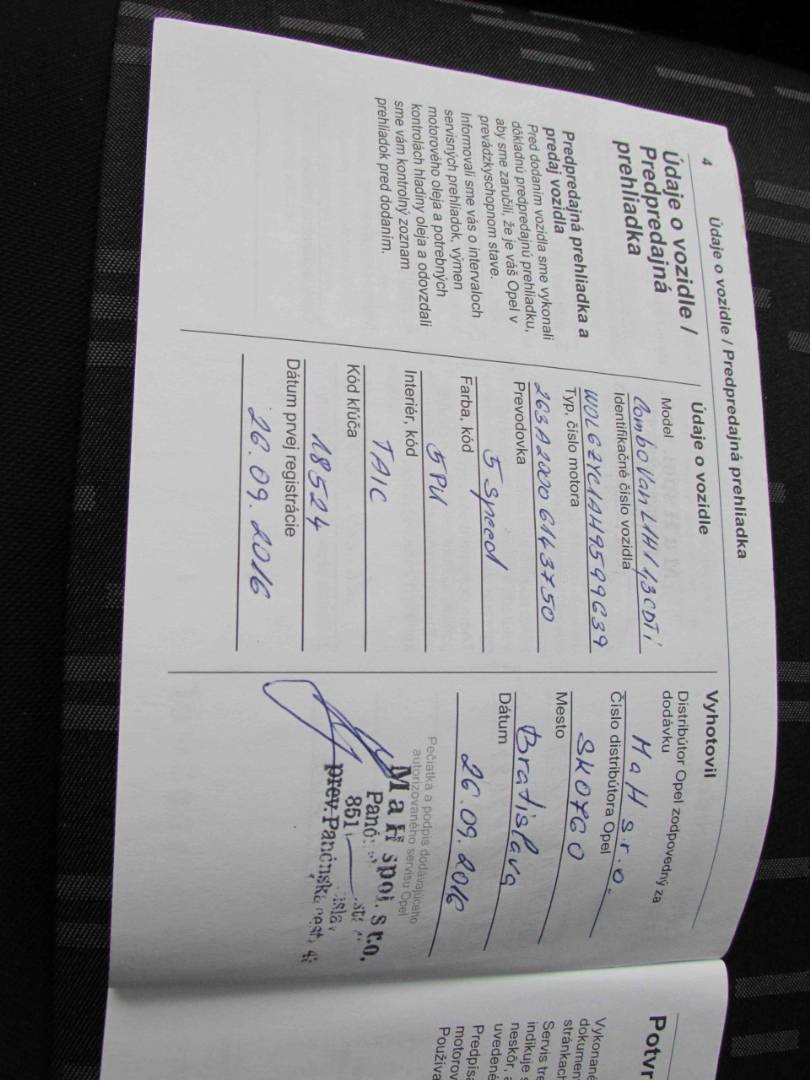 4
Údaje o vozidle / Predpredajná prehliadka
Údaje o vozidle /
Predpredajná
prehliadka
Predpredajná prehliadka a
predaj vozidla
Pred dodaním vozidla sme vykonali
dôkladnú predpredajnú prehliadku,
aby sme zaručili, že je váš Opel v
prevádzkyschopnom stave.
Informovali sme vás o intervaloch
servisných prehliadok, výmen
motorového oleja a potrebných
kontrolách hladiny oleja a odovzdali
sme vám kontrolný zoznam
prehliadok pred dodaním.
Údaje o vozidle
Model
Combo Van L1H1 1,3 CDTi
Identifikačné číslo vozidla
W0L6ZYC1AH9599639
Typ, číslo motora
263A2000 6143750
Prevodovka
5 Speed
Farba, kód
5PU
Interiér, kód
TAIC
Kód kľúča
18524
Dátum prvej registrácie
26.09.2016
Vyhotovil
Distribútor Opel zodpovedný za
dodávku
MaH s.r.o.
Číslo distribútora Opel
SK0760
Mesto
Bratislava
Dátum
26.09.2016
Pečiatka a podpis dodávajúceho
autorizovaného servisu Opel
MaH spol. s r.o.
851
prev. Panónska
Potvr
Vykonané
dokumen
stránkach
Servis tre
indikuje s
neskôr, a
uvedené
Predpisa
motorov
Používa